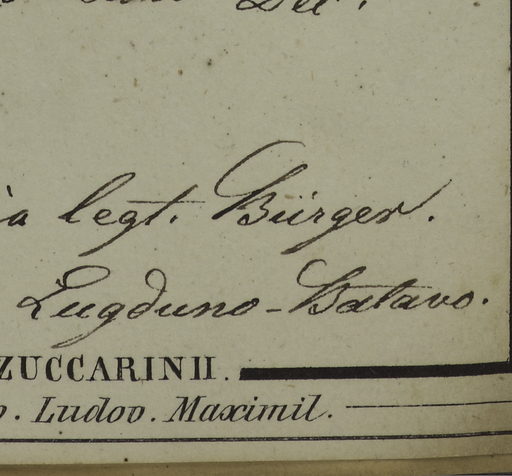 Dec.
a legt. Bürger.
Lugduno-Batavo.
ZUCCARINII.
o. Ludov. Maximil.